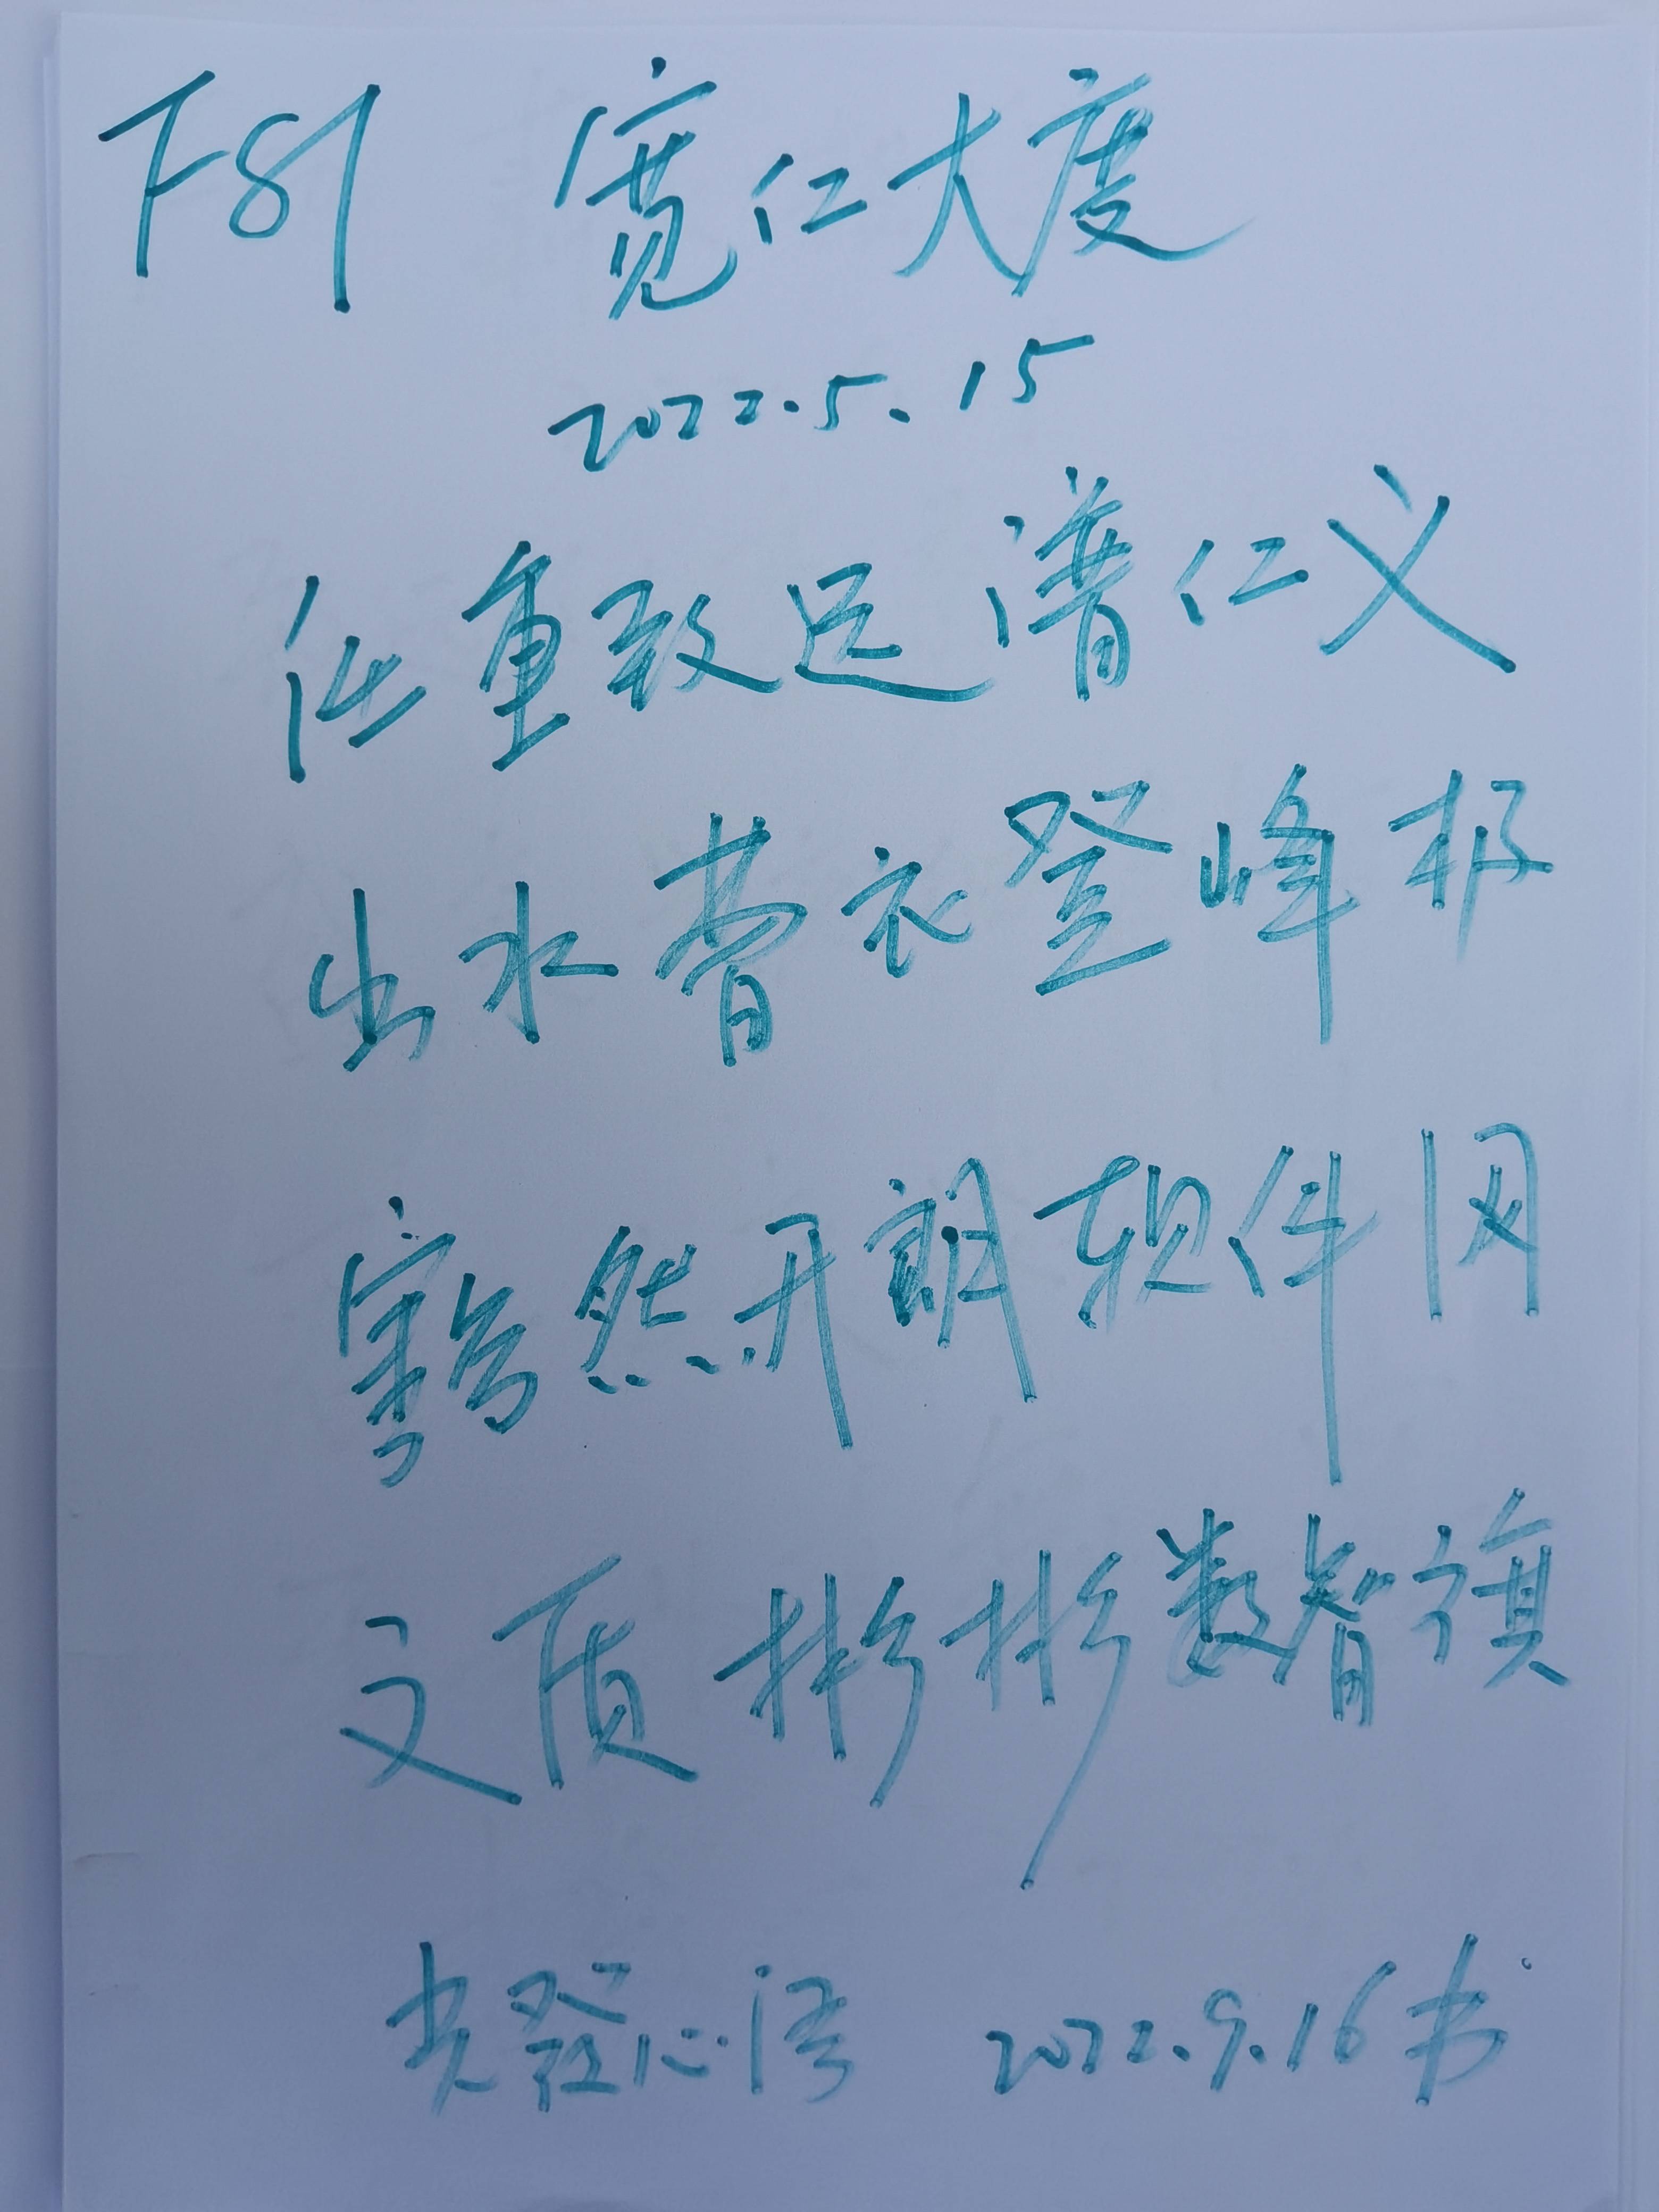 F81 宽仁大度
2022.5.15
任重致远谱仁义
出水曹衣登峰极
豁然开朗软件网
文质彬彬数智旗
光發心语 2022.9.16书